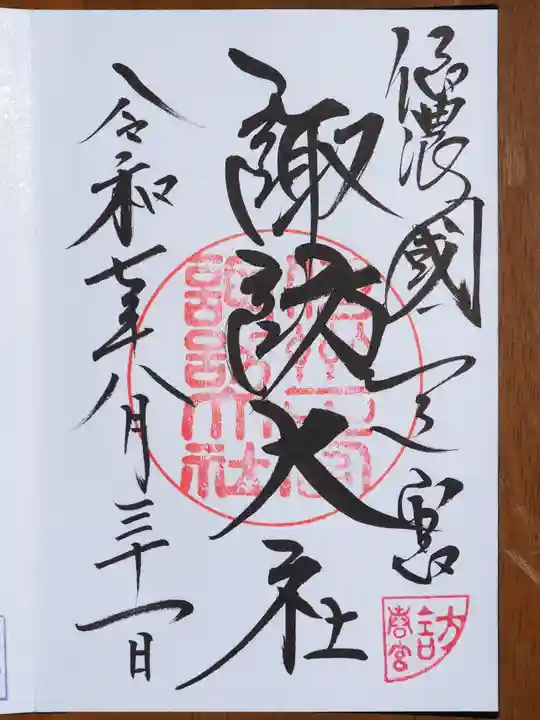 信濃國一之宮
諏訪大社
令和七年八月三十一日
諏訪大社
訪
春宮